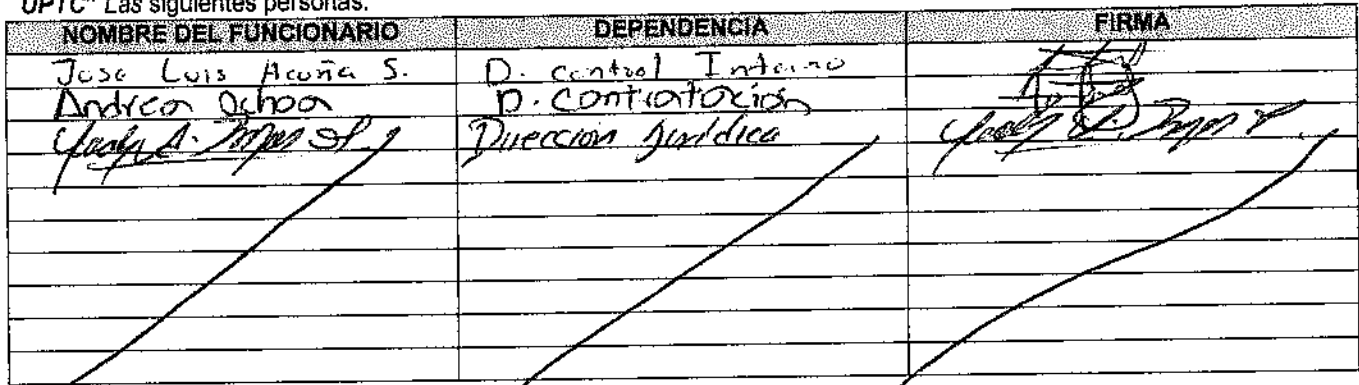 UPTC" Las siguientes personas:
NOMBRE DEL FUNCIONARIO DEPENDENCIA FIRMA
Jose Luis Acuña S. D. control Interno
Andrea Ochoa D. Contratación
Dirección Jurídica